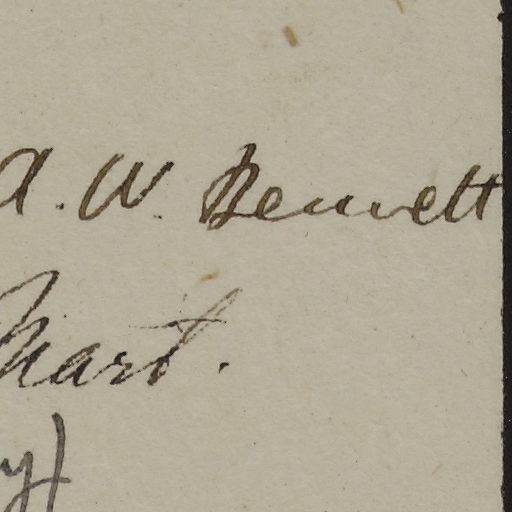 A. W. Bennett
Mart.
y)